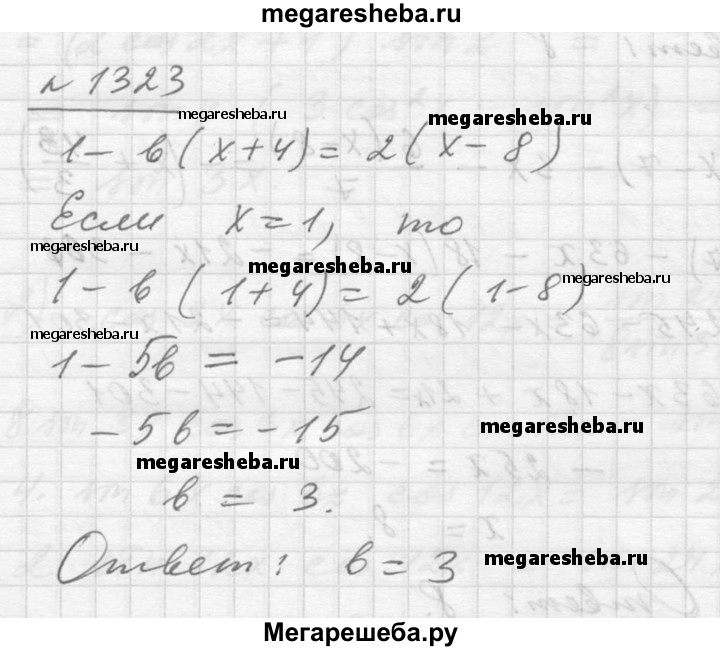 megaresheba.ru
№ 1323
megaresheba.ru
megaresheba.ru
1 - b(x+4) = 2(x-8)
Если x=1, то
megaresheba.ru
megaresheba.ru
megaresheba.ru
1 - b(1+4) = 2(1-8)
megaresheba.ru
1 - 5b = -14
-5b = -15
megaresheba.ru
megaresheba.ru
b = 3.
Ответ: b = 3
megaresheba.ru
Мегарешеба.ру